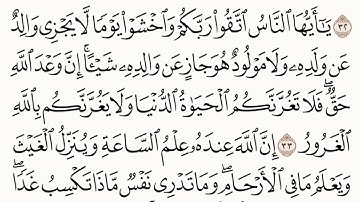 ٣٢ يَٰٓأَيُّهَا ٱلنَّاسُ ٱتَّقُوا۟ رَبَّكُمْ وَٱخْشَوْا۟ يَوْمًا لَّا يَجْزِى وَالِدٌ
عَن وَلَدِهِۦ وَلَا مَوْلُودٌ هُوَ جَازٍ عَن وَالِدِهِۦ شَيْـًٔا ۚ إِنَّ وَعْدَ ٱللَّهِ
حَقٌّ ۖ فَلَا تَغُرَّنَّكُمُ ٱلْحَيَوٰةُ ٱلدُّنْيَا وَلَا يَغُرَّنَّكُم بِٱللَّهِ
ٱلْغَرُورُ ٣٣ إِنَّ ٱللَّهَ عِندَهُۥ عِلْمُ ٱلسَّاعَةِ وَيُنَزِّلُ ٱلْغَيْثَ
وَيَعْلَمُ مَا فِى ٱلْأَرْحَامِ ۖ وَمَا تَدْرِى نَفْسٌ مَّاذَا تَكْسِبُ غَدًا ۖ